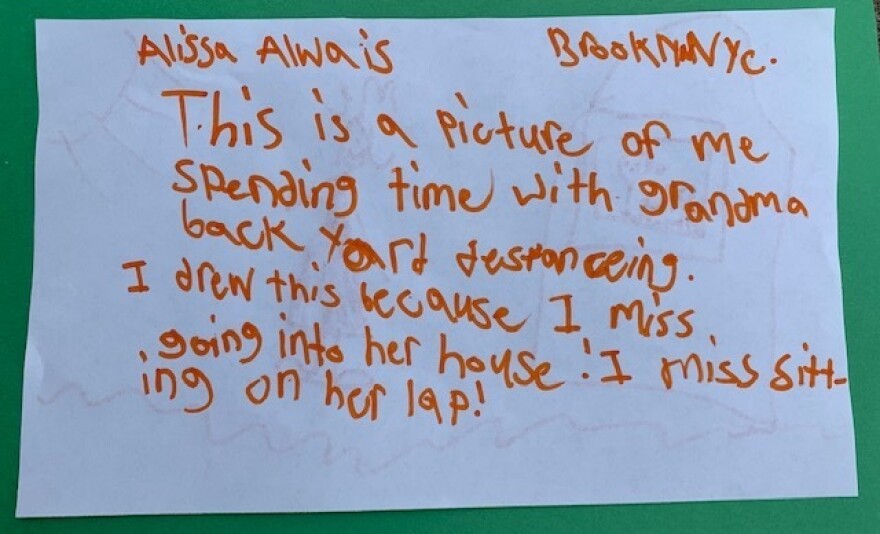 Alissa Alwais BrooklynNyc.
This is a picture of me
spending time with grandma
back yard destanceing.
I drew this because I miss
going into her house! I miss sitt-
ing on her lap!